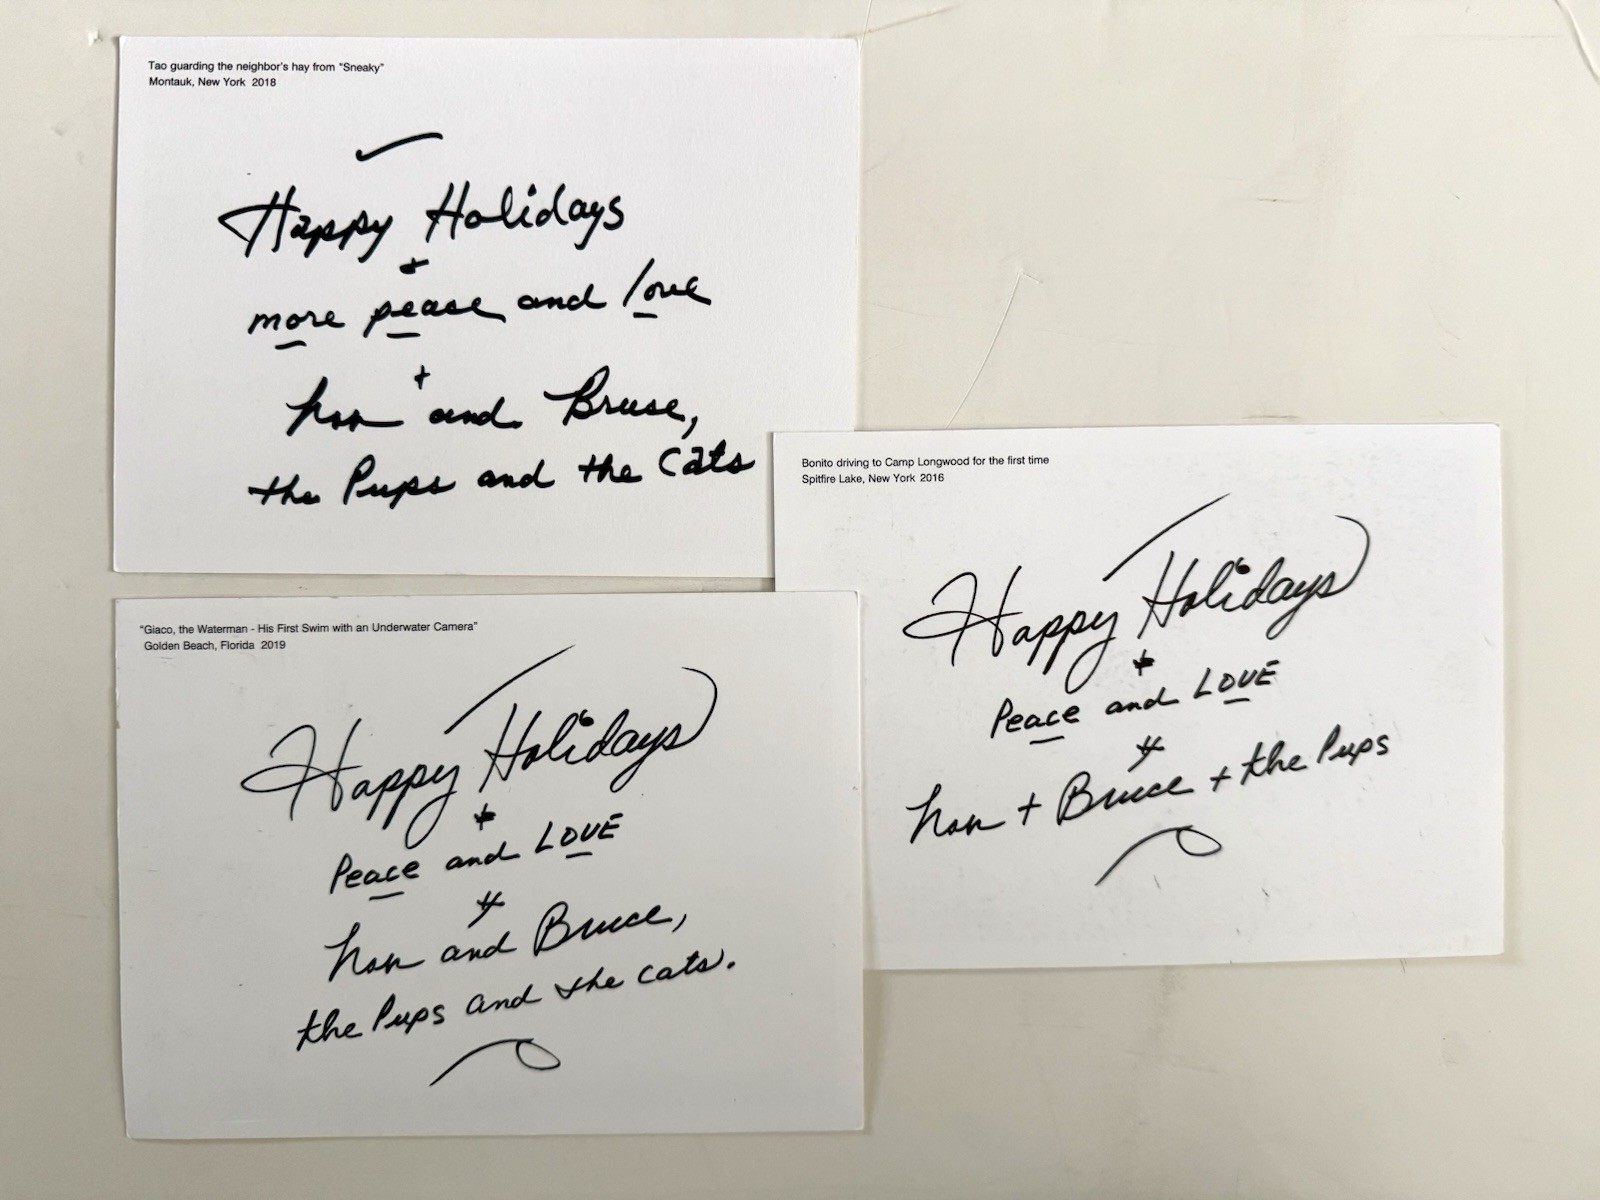 Tao guarding the neighbor's hay from "Sneaky"
Montauk, New York 2018
Happy Holidays
+
more pease and love
+
and Bruse,
the Pups and the Cats
Bonito driving to Camp Longwood for the first time
Spitfire Lake, New York 2016
Happy Holidays
+
Peace and LOVE
+ Bruce + the Pups
"Giaco, the Waterman - His First Swim with an Underwater Camera"
Golden Beach, Florida 2019
Happy Holidays
+
Peace and LOVE
and Bruce,
the Pups and the cats.